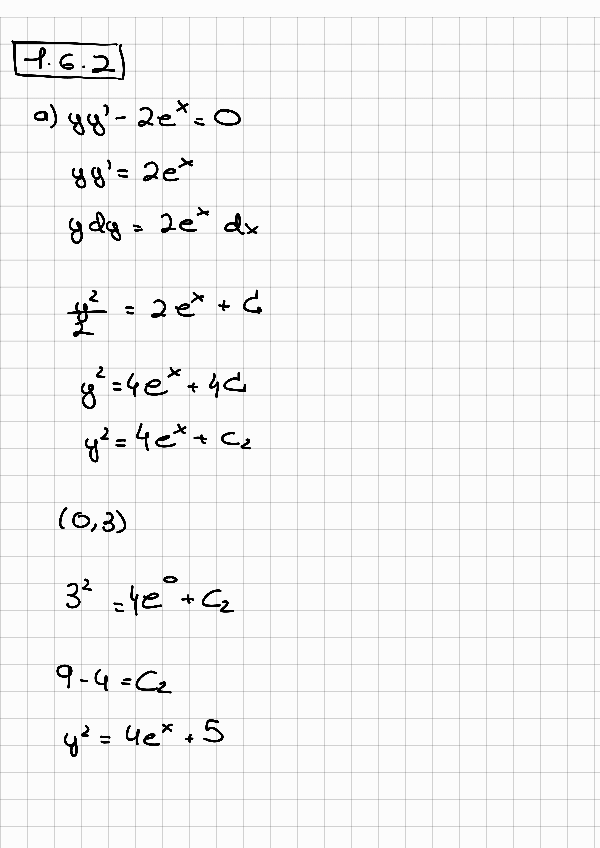 1.6.2
a) yy' - 2e^x = 0
yy' = 2e^x
y dy = 2e^x dx
y^2/2 = 2e^x + C₁
y^2 = 4e^x + 4C₁
y^2 = 4e^x + C₂
(0,3)
3^2 = 4e^0 + C₂
9 - 4 = C₂
y^2 = 4e^x + 5